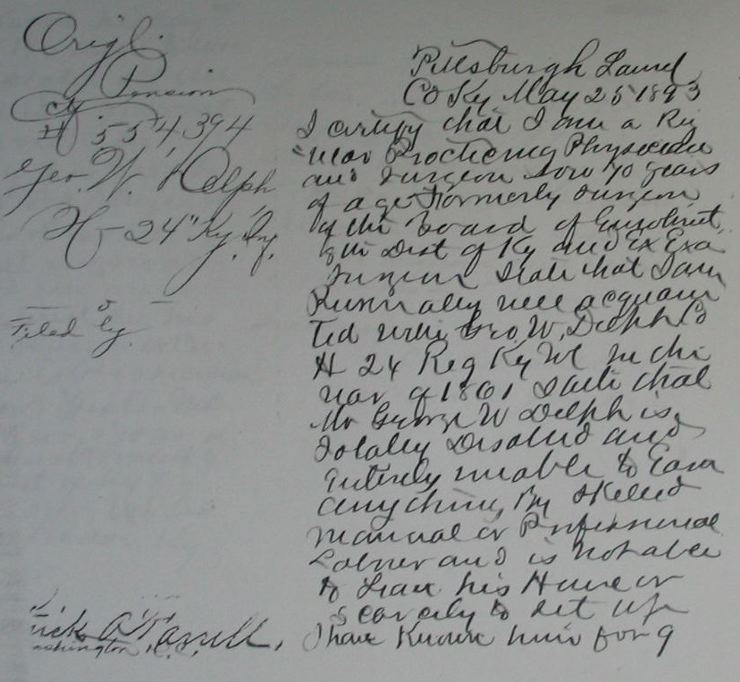 Orig'l.
Pension
Ctf
# 554,394
Geo. W. Delph
H- 24" Ky. Inf.
Filed by
O'Farrell,
ashington, D.C.
Pittsburgh Laurel
Co Ky May 25 1893
I certify that I am a Reg
ular Practicing Physician
and Surgeon now 70 years
of age Formerly Surgeon
of the board of
Dist of Ky and Ex Exa
Surgeon State that I am
Personally well acquain
ted with Geo. W. Delph Co
H 24 Reg Ky Vol in the
war of 1861 State that
Mr George W Delph is
Totally Disabled and
Entirely unable to Earn
anything By Skilled
manual or Professional
Labor and is not able
to leave his House or
scarcely to set up
I have Known him for 9